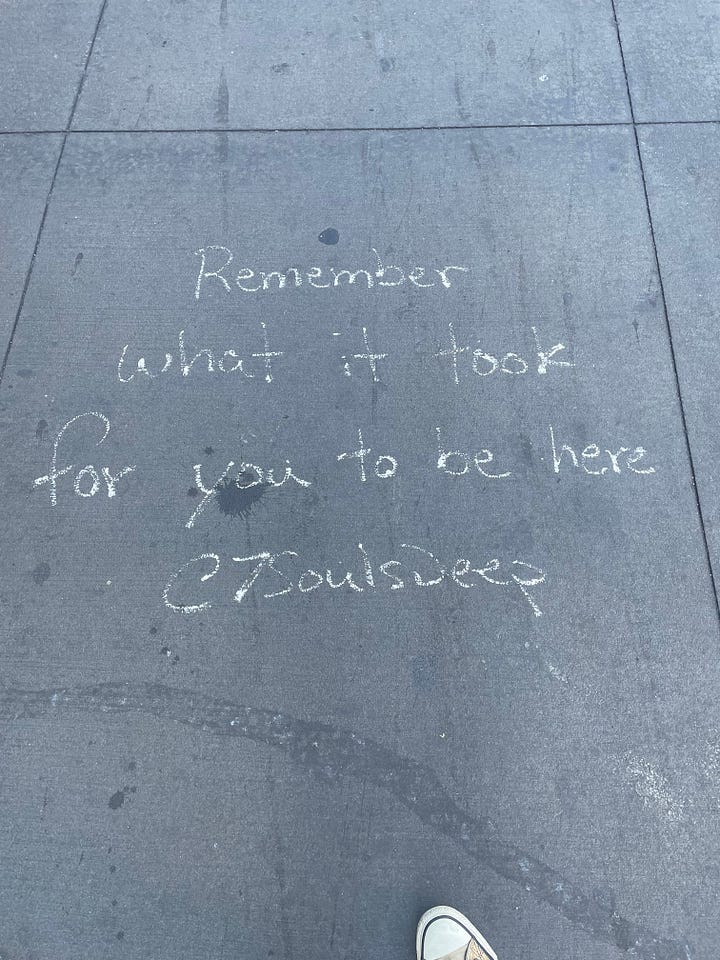 Remember
what it took
for you to be here
@7SoulsDeep